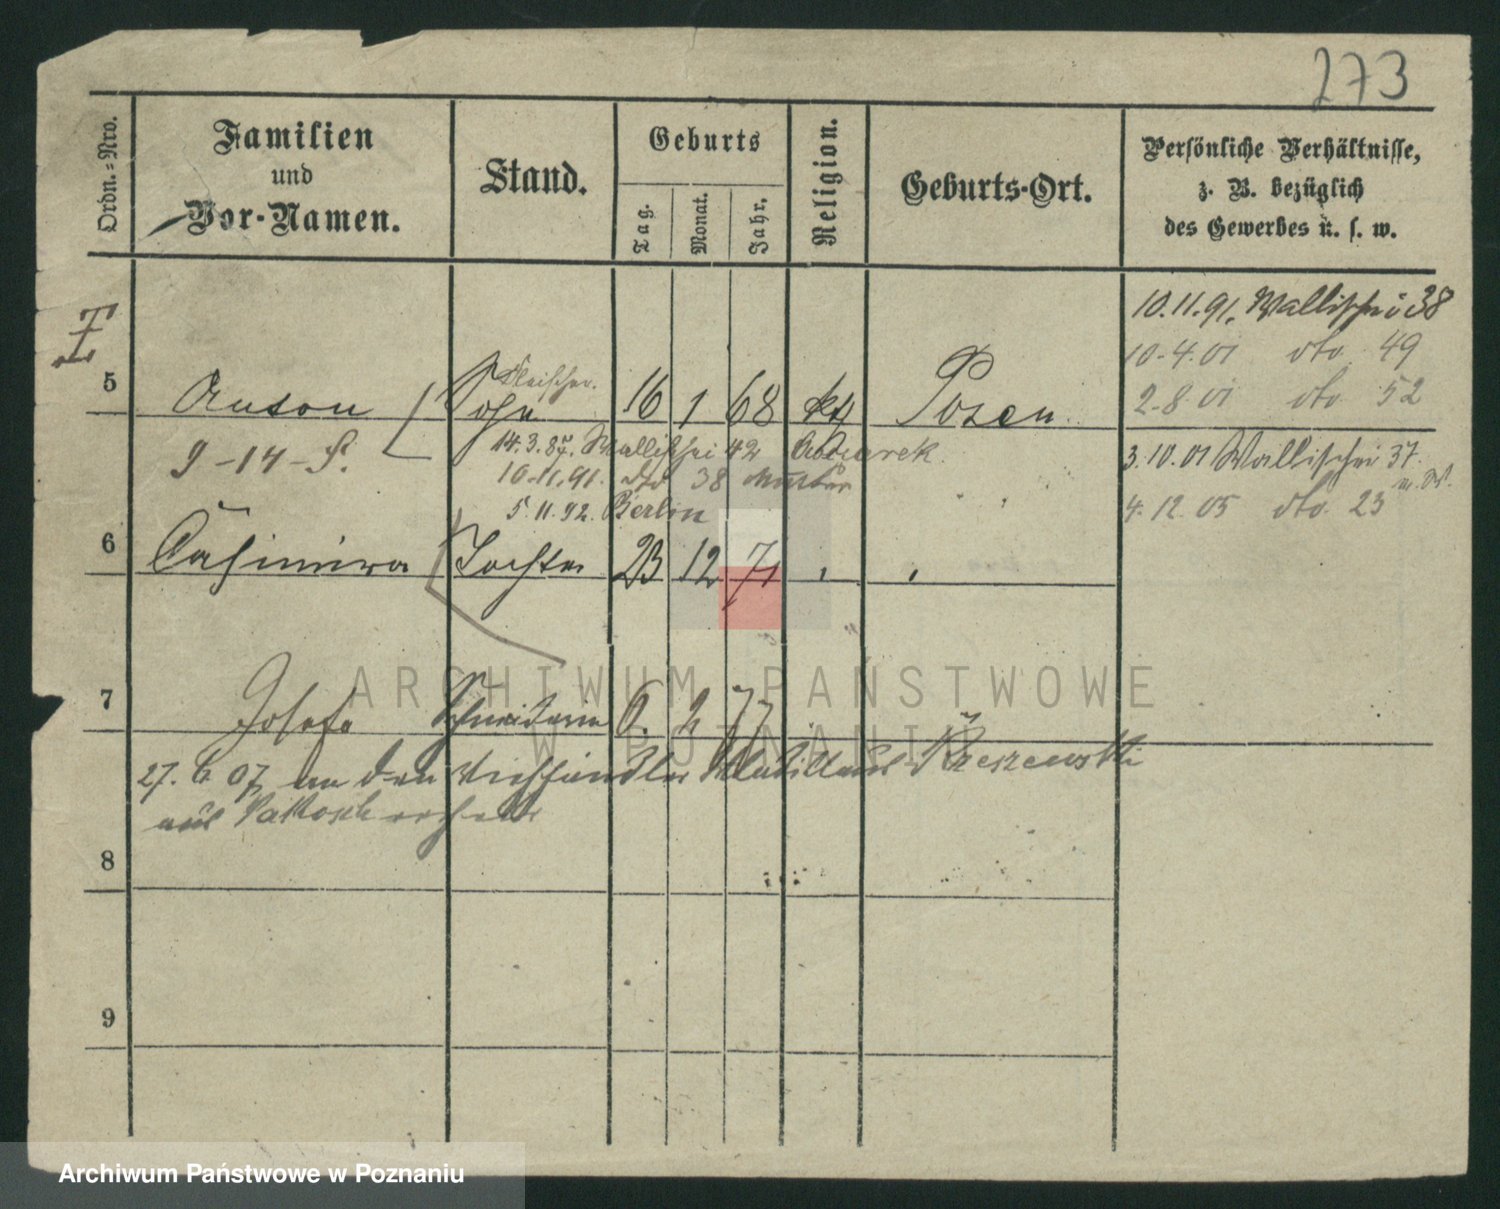 273
Ordn.-Nro.
Familien
und
Vor-Namen.
Stand.
Geburts
Tag.
Monat.
Jahr.
Religion.
Geburts-Ort.
Persönliche Verhältnisse,
z. B. bezüglich
des Gewerbes u. s. w.
10.11.91. Wallischei 38
10.4.01 dto 49
2.8.01 dto 52
5 Anton Sohn Fleischer. 16 1 68 kth Posen
9-14-S.
14.3.87. Wallischei 42
10.11.91. dto 38 Mutter
5.11.92. Berlin
3.10.01 Wallischei 37.
4.12.05 dto. 23
6 Casimira Tochter 23 12 71
7 Josefa Schneiderin 6. 2 77
27.6 07 an den Viehhändler Rzeszewski
aus Pakosch
8
9
ARCHIWUM PAŃSTWOWE
W POZNANIU
Archiwum Państwowe w Poznaniu